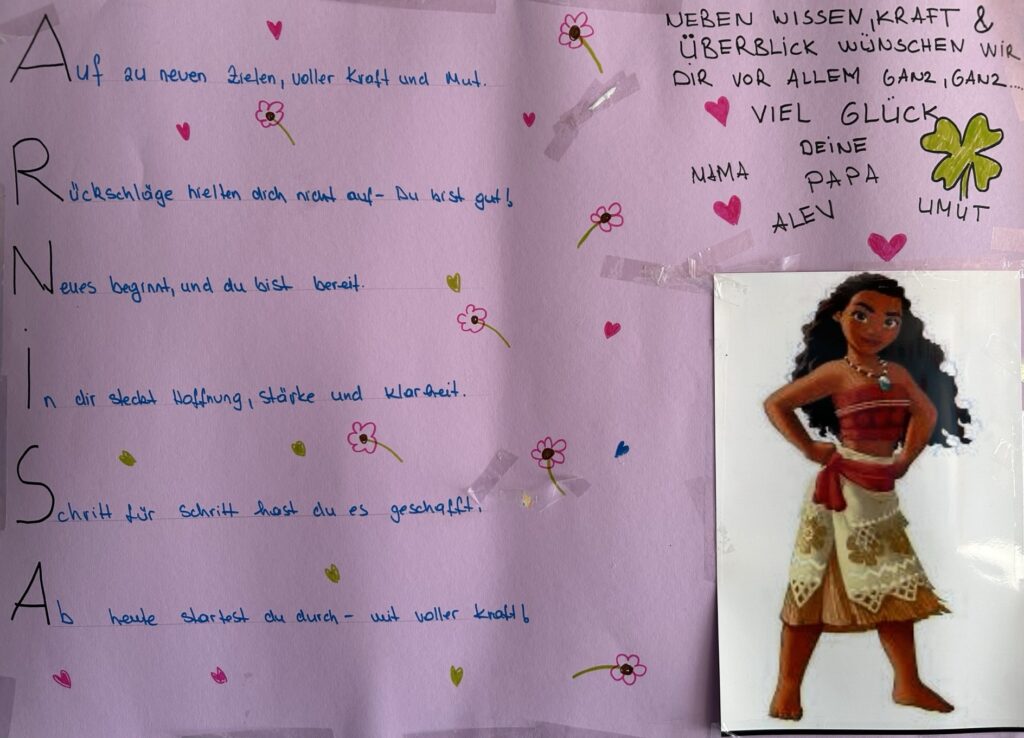 Auf zu neuen Zielen, voller Kraft und Mut.
Rückschläge hielten dich nicht auf - Du bist gut!
Neues beginnt, und du bist bereit.
In dir steckt Hoffnung, stärke und Klarheit.
Schritt für Schritt hast du es geschafft,
Ab heute startest du durch - mit voller Kraft!
NEBEN WISSEN, KRAFT &
ÜBERBLICK WÜNSCHEN WIR
DIR VOR ALLEM GANZ, GANZ....
VIEL GLÜCK
DEINE
MAMA PAPA
ALEV UMUT